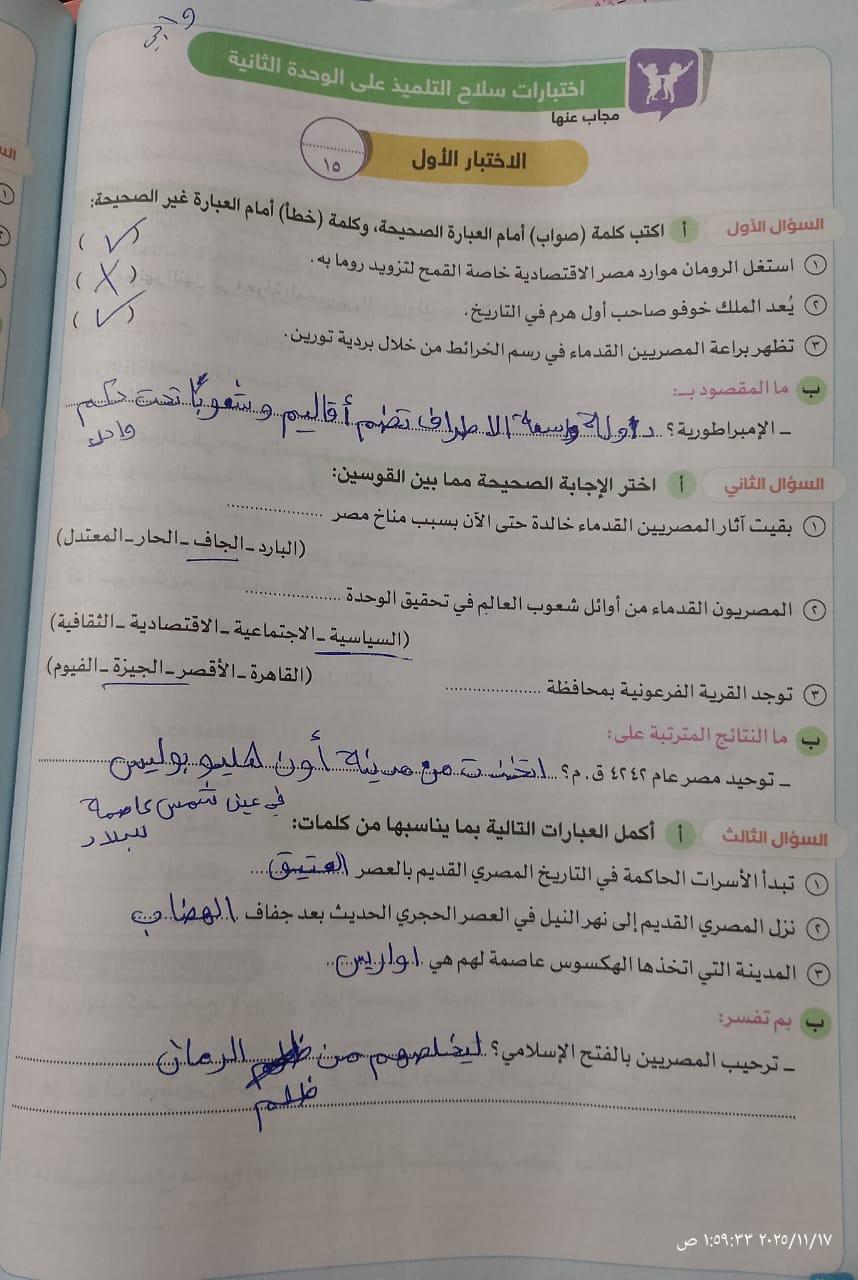 اختبارات سلاح التلميذ على الوحدة الثانية
مجاب عنها
الاختبار الأول
١٥
السؤال الأول أ اكتب كلمة (صواب) أمام العبارة الصحيحة، وكلمة (خطأ) أمام العبارة غير الصحيحة:
١ استغل الرومان موارد مصر الاقتصادية خاصة القمح لتزويد روما به. (✓)
٢ يُعد الملك خوفو صاحب أول هرم في التاريخ. (X)
٣ تظهر براعة المصريين القدماء في رسم الخرائط من خلال بردية تورين. (✓)
ب ما المقصود بـ:
_ الإمبراطورية؟ دولة واسعة الاطراف تضم أقاليم وشعوبًا تحت حكم
واحد
السؤال الثاني أ اختر الإجابة الصحيحة مما بين القوسين:
١ بقيت آثار المصريين القدماء خالدة حتى الآن بسبب مناخ مصر ....................
(البارد _ الجاف _ الحار _ المعتدل)
٢ المصريون القدماء من أوائل شعوب العالم في تحقيق الوحدة ....................
(السياسية _ الاجتماعية _ الاقتصادية _ الثقافية)
٣ توجد القرية الفرعونية بمحافظة .................... (القاهرة _ الأقصر _ الجيزة _ الفيوم)
ب ما النتائج المترتبة على:
_ توحيد مصر عام ٤٢٤٢ ق.م؟ اتخذت من مدينة أون هليوبوليس
في عين شمس عاصمة
للبلاد
السؤال الثالث أ أكمل العبارات التالية بما يناسبها من كلمات:
١ تبدأ الأسرات الحاكمة في التاريخ المصري القديم بالعصر العتيق
٢ نزل المصري القديم إلى نهر النيل في العصر الحجري الحديث بعد جفاف الهضاب
٣ المدينة التي اتخذها الهكسوس عاصمة لهم هي اواريس
ب بم تفسر:
_ ترحيب المصريين بالفتح الإسلامي؟ ليخلصهم من الرمان
ظلم
٢٠٢٥/١١/١٧ ١:٥٩:٣٣ ص